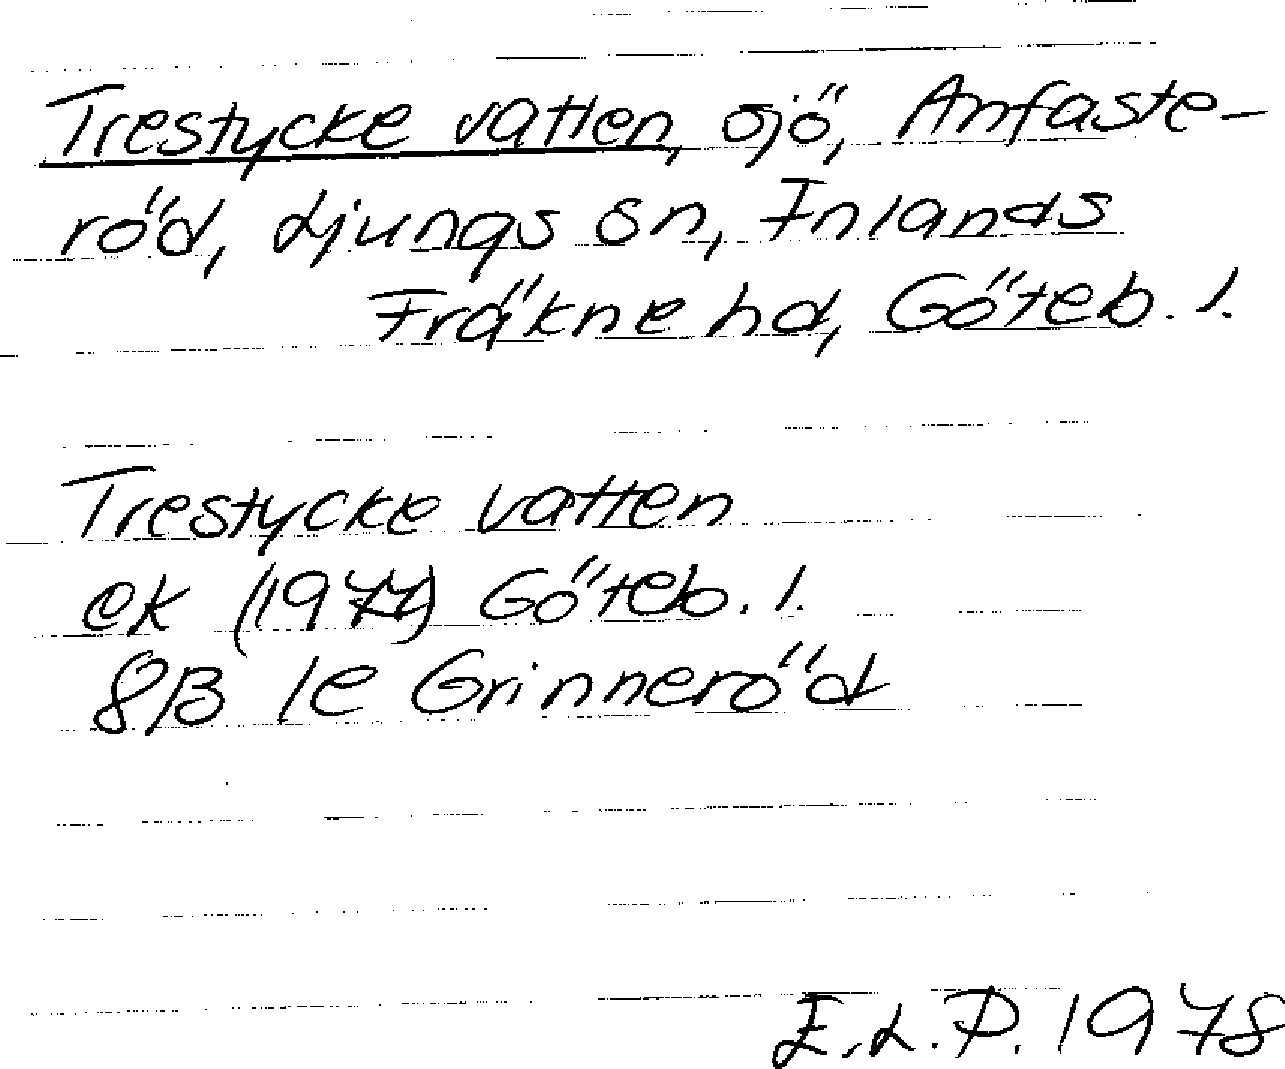 Trestycke vatten, sjö, Anfaste-
röd, Ljungs sn, Inlands
Fräkne hd, Göteb. l.
Trestycke vatten
ek (1977) Göteb. l.
8B 1e Grinneröd
E.L.P. 1978